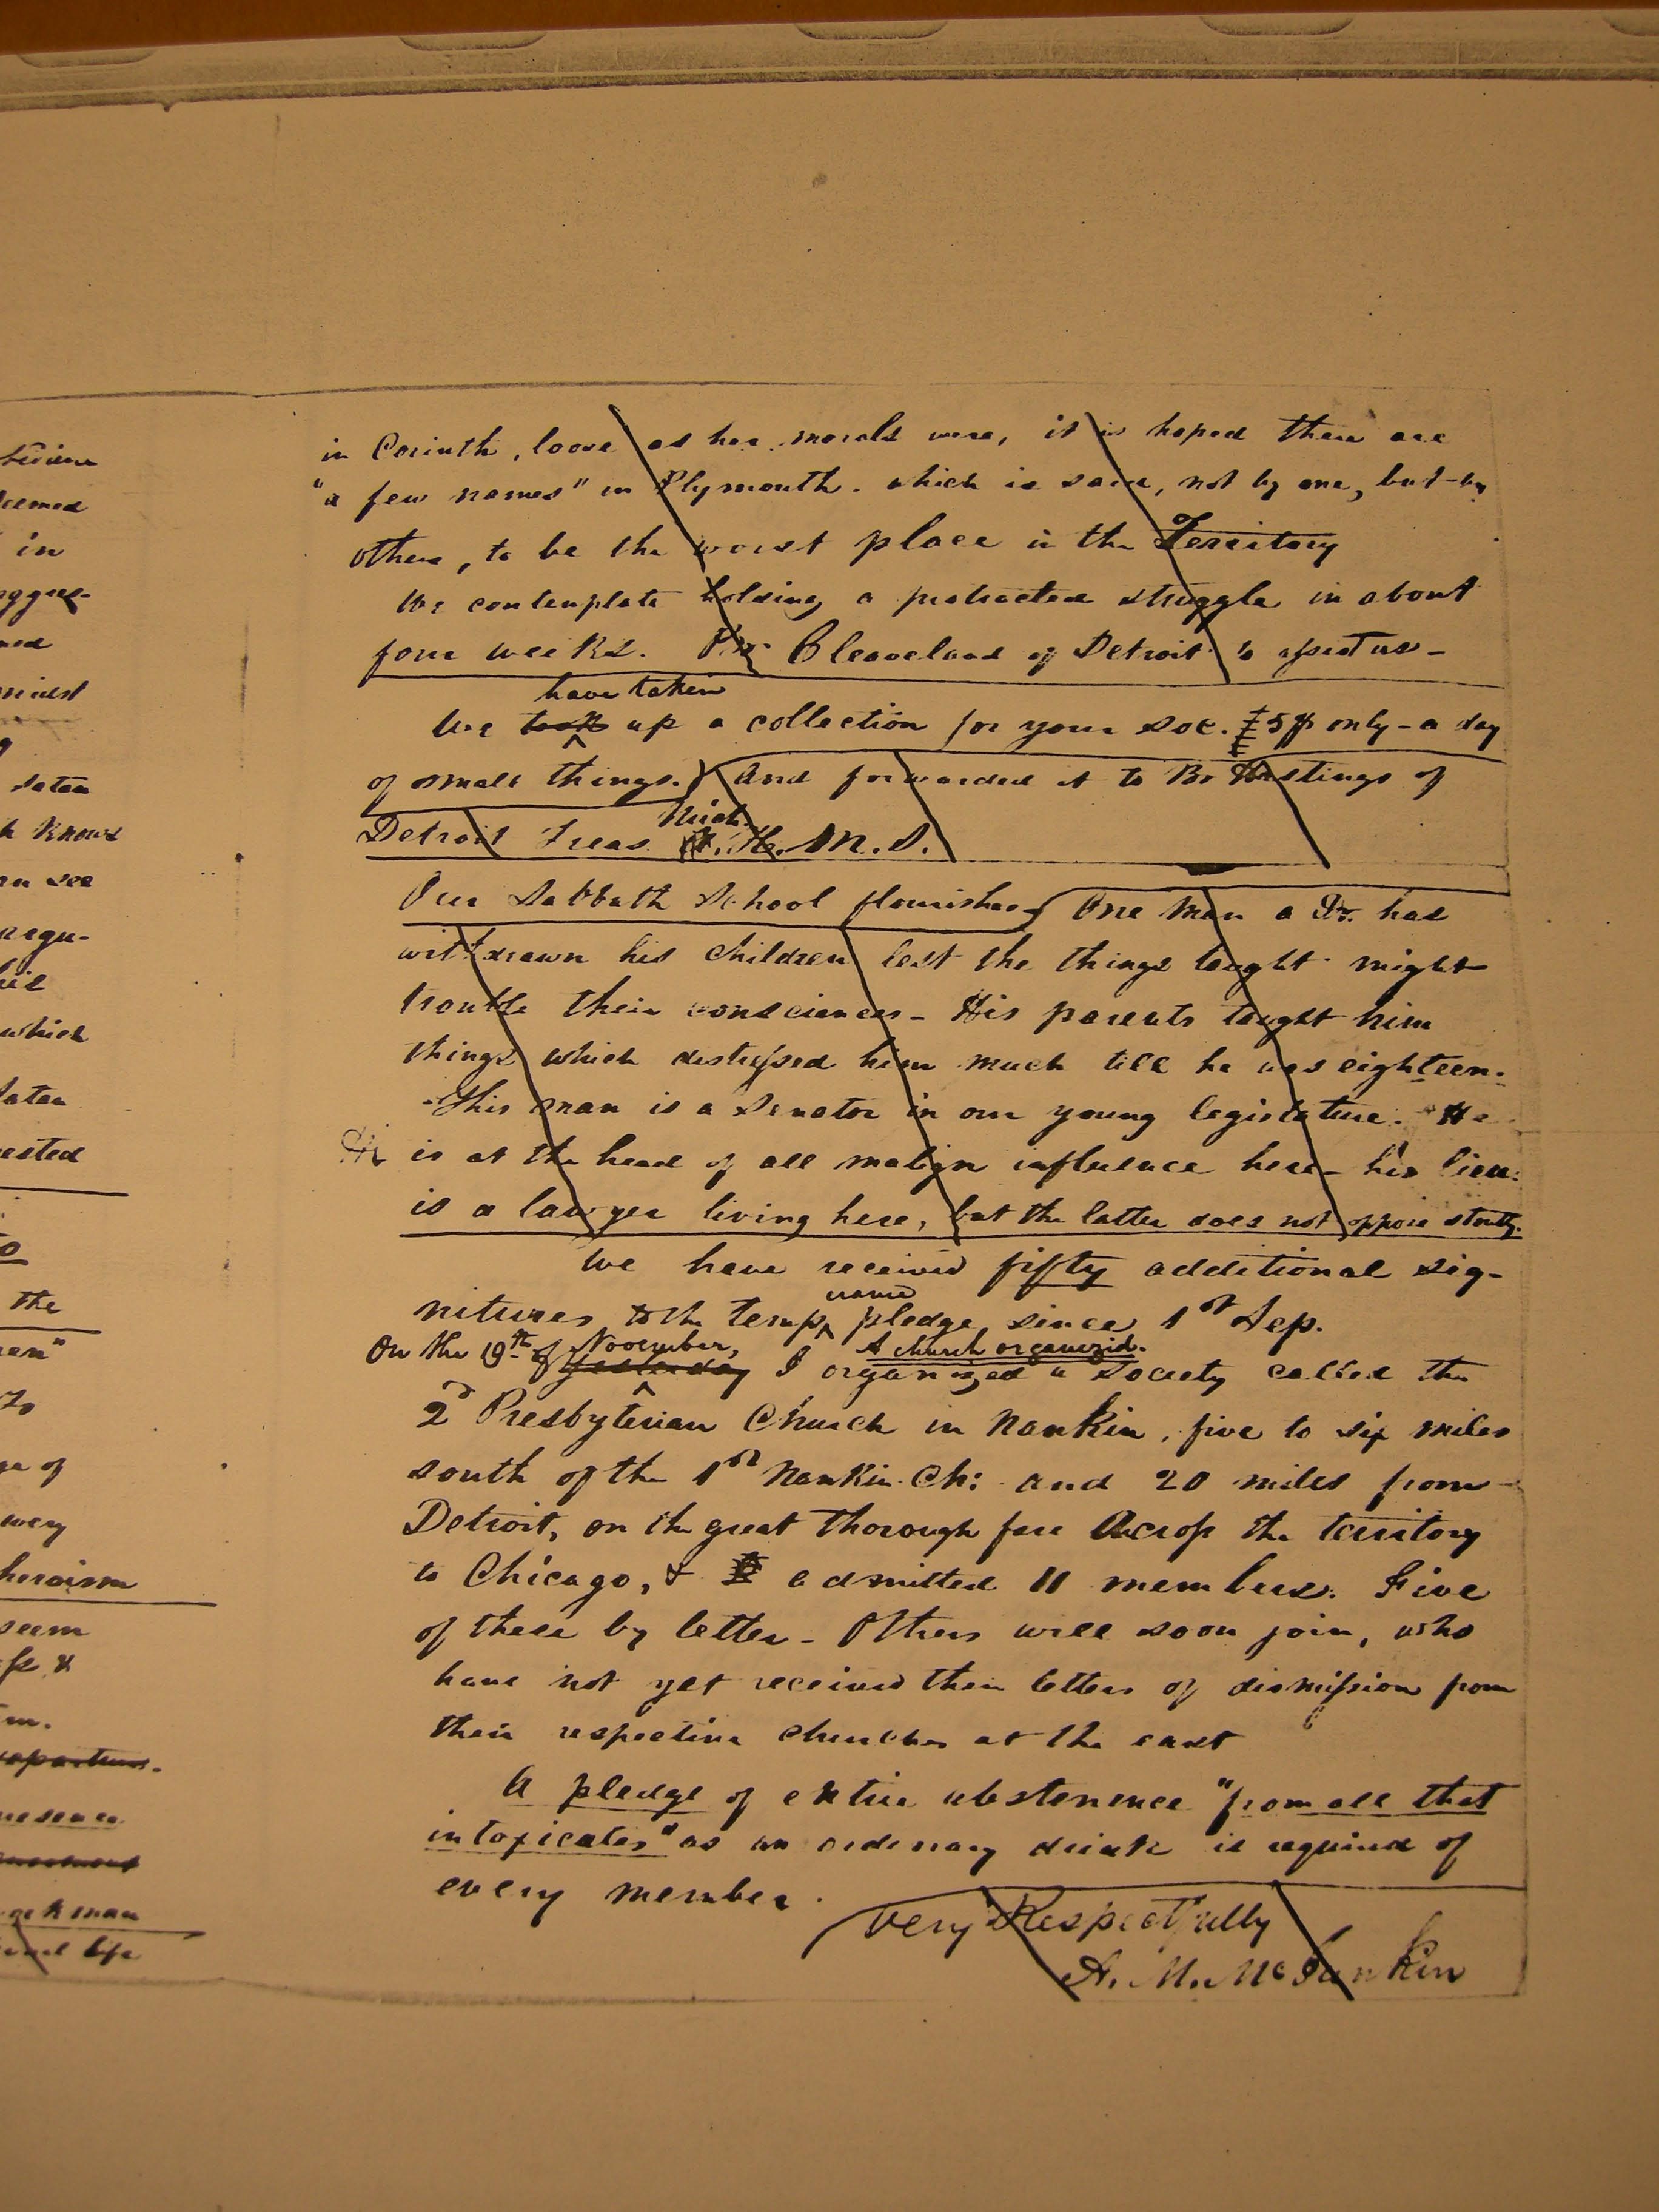 in Corinth, loose as her morals were, it is hoped there are
"a few names" in Plymouth. which is said, not by one, but by
others, to be the worst place in the Territory
We contemplate holding a protracted struggle in about
four weeks. Cleaveland of Detroit to assist us-
have taken
We took up a collection for your soc. 5$ only - a day
of small things. And forwarded it to Br Hastings of
Mich.
Detroit Treas. H. M. S.
Our Sabbath School flourishes One man a Dr. has
withdrawn his children lest the things taught might
trouble their consciences - His parents taught him
things which distressed him much till he was eighteen.
This man is a Senator in our young legislature. He
is at the head of all malign influence here - his lieu:
is a lawyer living here, but the latter does not oppose
We have received fifty additional sig-
nitures to the temp pledge since 1st Sep.
On the 19th of November, A church organized.
yesterday I organized a Society called the
2d Presbyterian Church in Nankin, five to six miles
south of the 1st Nankin Ch: and 20 miles from
Detroit, on the great thorough fare Across the territory
to Chicago, & admitted 11 members. Five
of these by letter - Others will soon join, who
have not yet received their letters of dismission from
their respective churches at the east
A pledge of entire abstenence "from all that
intoxicates" as an ordenary drink is required of
every member.
Very Respectfully
A. M. McJunkin
knows
see
which
Satan
the
heroism
seem